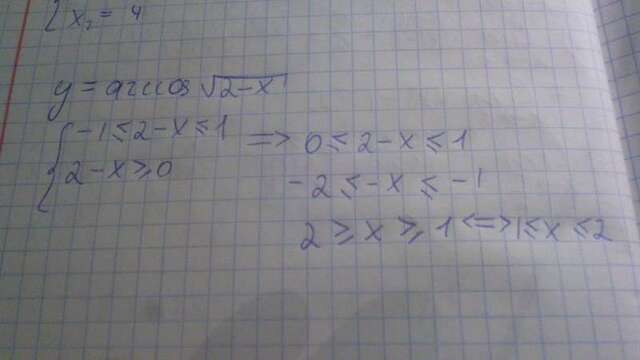 { x₂ = 4
y = arccos √(2-x)
{ -1 ≤ 2-x ≤ 1 => 0 ≤ 2-x ≤ 1
2-x ≥ 0
-2 ≤ -x ≤ -1
2 ≥ x ≥ 1 <=> 1 ≤ x ≤ 2